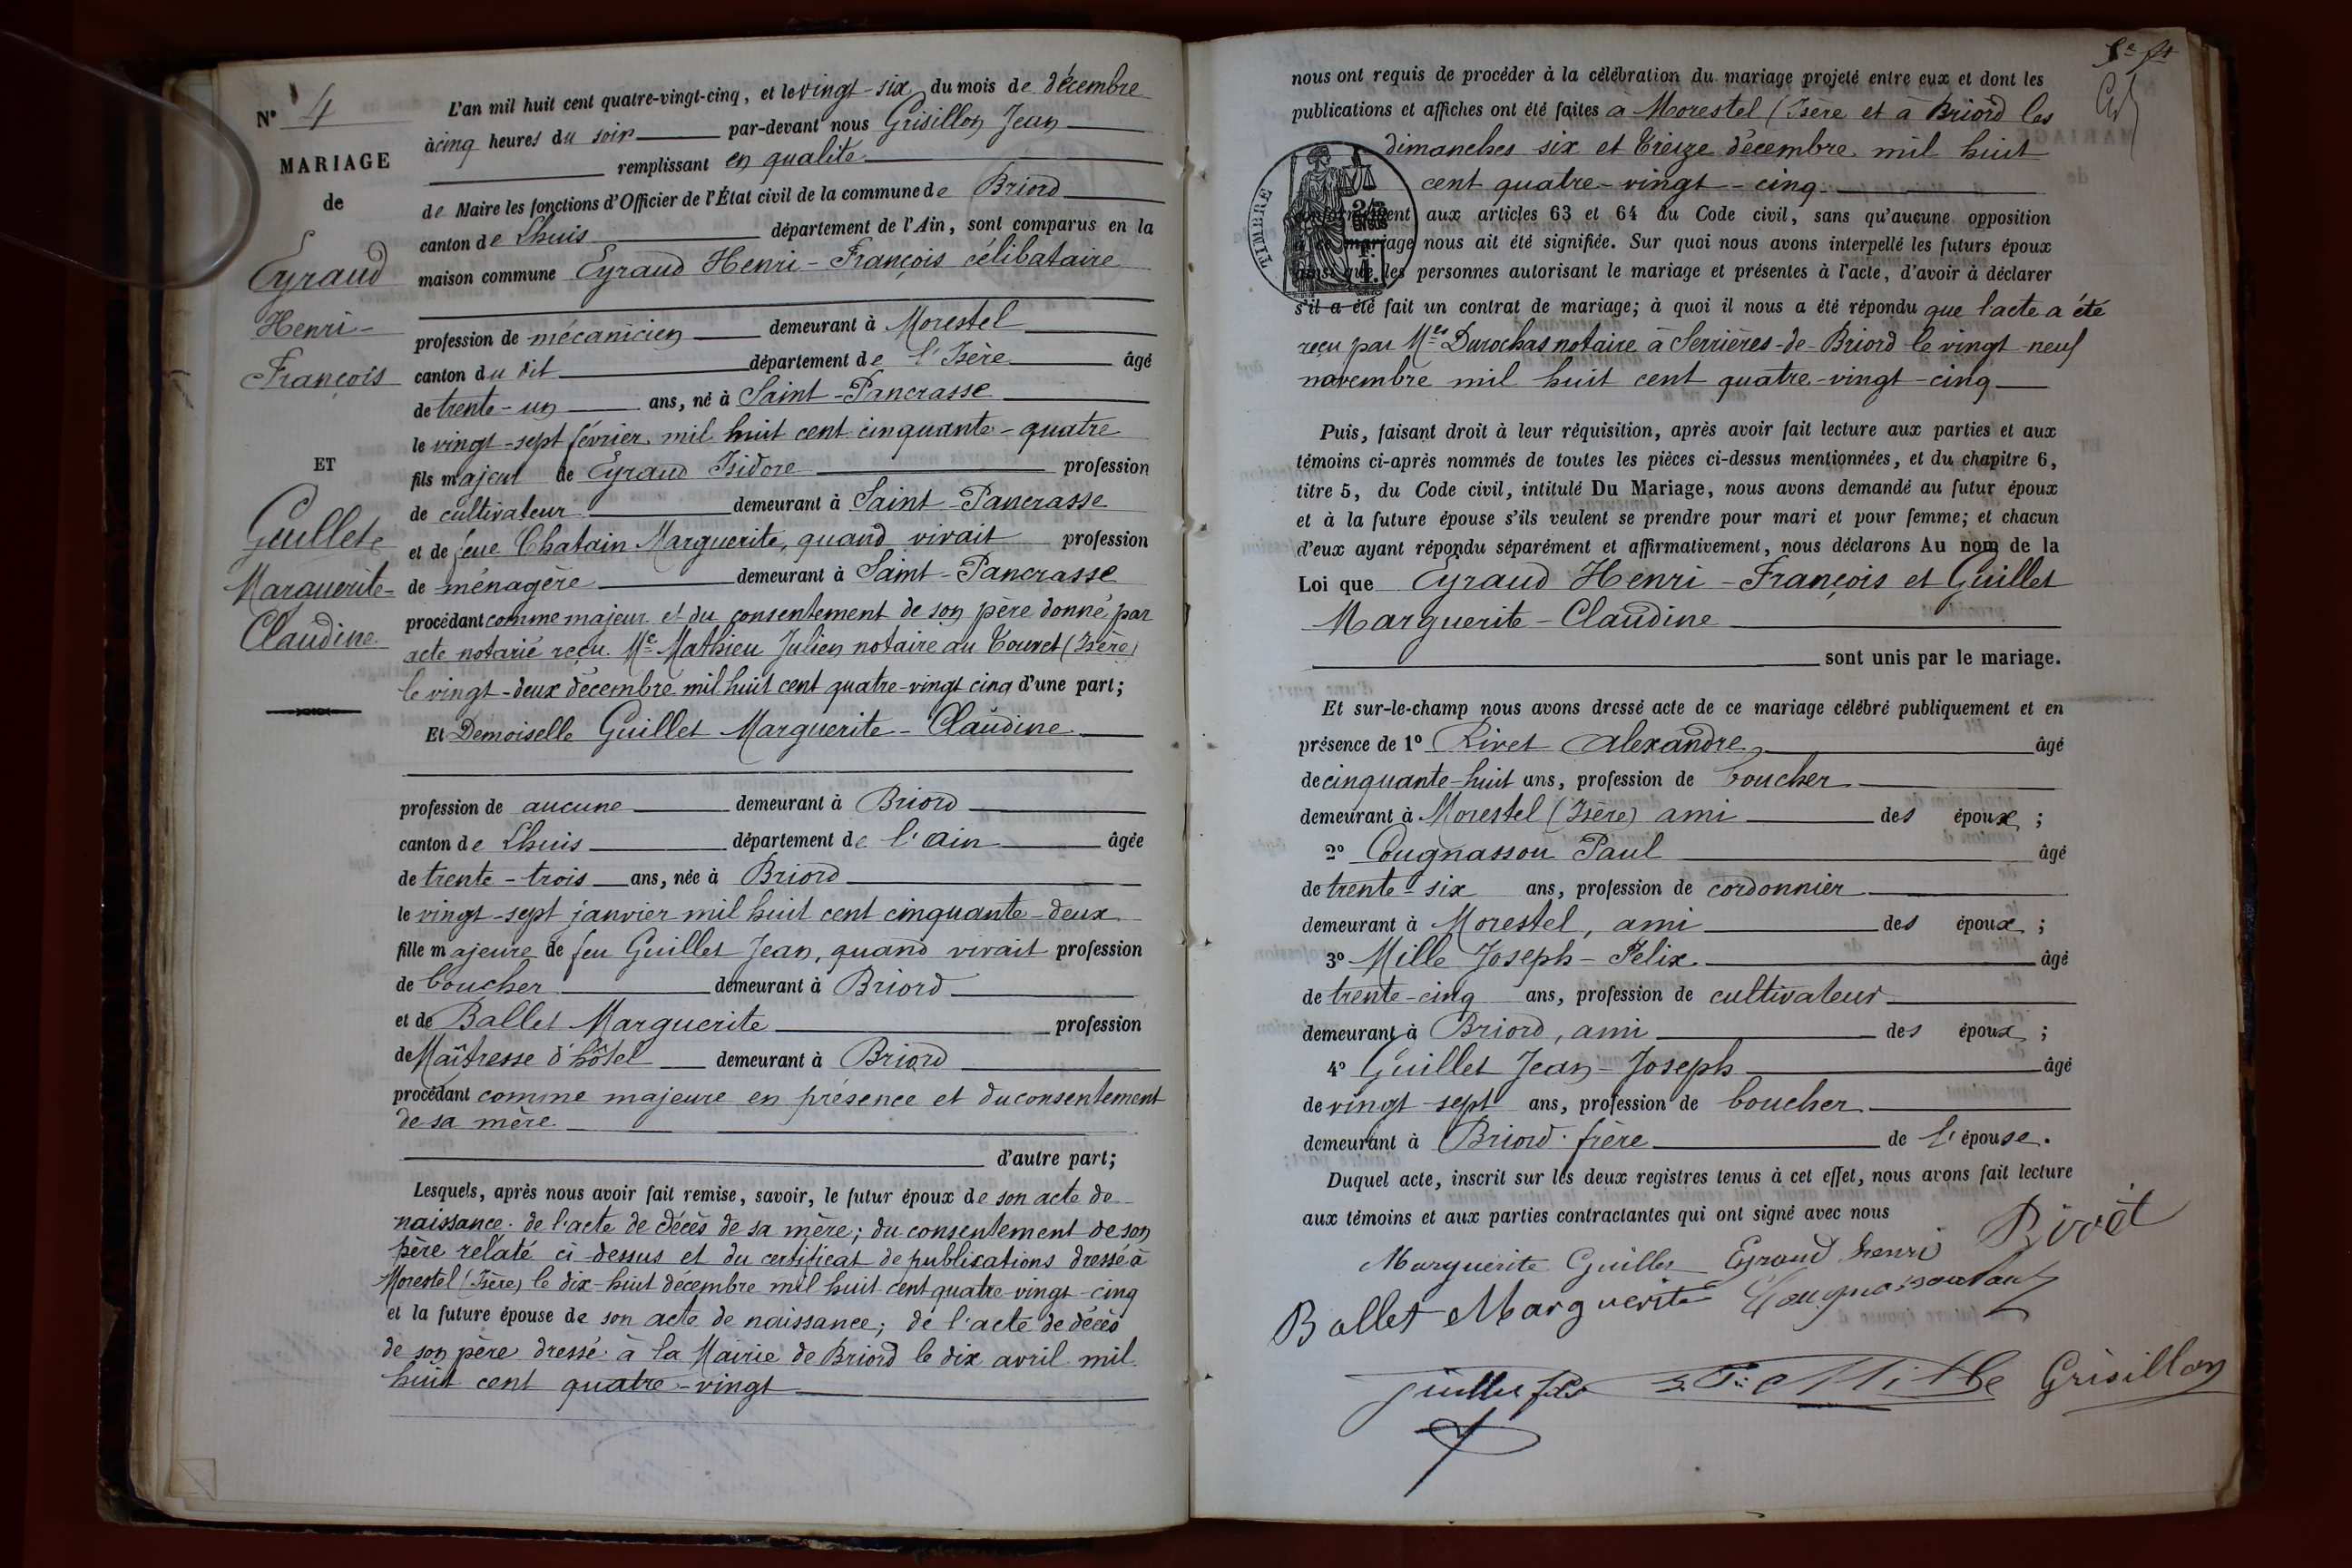 N° 4
MARIAGE
de
Eyraud
Henri-
François
ET
Guillet
Marguerite-
Claudine
L'an mil huit cent quatre-vingt-cinq, et le vingt-six du mois de décembre
à cinq heures du soir par-devant nous Grisillon Jean
remplissant en qualité
de Maire les fonctions d'Officier de l'État civil de la commune de Briord
canton de Lhuis département de l'Ain, sont comparus en la
maison commune Eyraud Henri-François célibataire
profession de mécanicien demeurant à Morestel
canton du dit département de l'Isère âgé
de trente-un ans, né à Saint-Pancrasse
le vingt-sept février mil huit cent cinquante-quatre
fils majeur de Eyraud Isidore profession
de cultivateur demeurant à Saint-Pancrasse
et de feue Chatain Marguerite, quand vivait profession
de ménagère demeurant à Saint-Pancrasse
procédant comme majeur et du consentement de son père donné par
acte notarié reçu Me Mathieu Julien notaire au Touvet (Isère)
le vingt-deux décembre mil huit cent quatre-vingt cinq d'une part;
Et Demoiselle Guillet Marguerite-Claudine
profession de aucune demeurant à Briord
canton de Lhuis département de l'Ain âgée
de trente-trois ans, née à Briord
le vingt-sept janvier mil huit cent cinquante-deux
fille majeure de feu Guillet Jean, quand vivait profession
de boucher demeurant à Briord
et de Ballet Marguerite profession
de Maîtresse d'hôtel demeurant à Briord
procédant comme majeure en présence et du consentement
de sa mère
d'autre part;
Lesquels, après nous avoir fait remise, savoir, le futur époux de son acte de
naissance. de l'acte de décès de sa mère; du consentement de son
père relaté ci-dessus et du certificat de publications dressé à
Morestel (Isère) le dix-huit décembre mil huit cent quatre-vingt-cinq
et la future épouse de son acte de naissance; de l'acte de décès
de son père dressé à la Mairie de Briord le dix avril mil
huit cent quatre-vingt
nous ont requis de procéder à la célébration du mariage projeté entre eux et dont les
publications et affiches ont été faites à Morestel (Isère et à Briord les
dimanches six et treize décembre mil huit
cent quatre-vingt-cinq
TIMBRE
conformément aux articles 63 et 64 du Code civil, sans qu'aucune opposition
à ce mariage nous ait été signifiée. Sur quoi nous avons interpellé les futurs époux
ainsi que les personnes autorisant le mariage et présentes à l'acte, d'avoir à déclarer
s'il a été fait un contrat de mariage; à quoi il nous a été répondu que l'acte a été
reçu par Mes Durochas notaire à Serrières-de-Briord le vingt-neuf
novembre mil huit cent quatre-vingt-cinq
Puis, faisant droit à leur réquisition, après avoir fait lecture aux parties et aux
témoins ci-après nommés de toutes les pièces ci-dessus mentionnées, et du chapitre 6,
titre 5, du Code civil, intitulé Du Mariage, nous avons demandé au futur époux
et à la future épouse s'ils veulent se prendre pour mari et pour femme; et chacun
d'eux ayant répondu séparément et affirmativement, nous déclarons Au nom de la
Loi que Eyraud Henri-François et Guillet
Marguerite-Claudine
sont unis par le mariage.
Et sur-le-champ nous avons dressé acte de ce mariage célébré publiquement et en
présence de 1° Rivet Alexandre âgé
de cinquante-huit ans, profession de boucher
demeurant à Morestel (Isère) ami des époux;
2° Cougnassou Paul âgé
de trente-six ans, profession de cordonnier
demeurant à Morestel, ami des époux;
3° Mille Joseph-Félix âgé
de trente-cinq ans, profession de cultivateur
demeurant à Briord, ami des époux;
4° Guillet Jean-Joseph âgé
de vingt-sept ans, profession de boucher
demeurant à Briord. frère de l'épouse.
Duquel acte, inscrit sur les deux registres tenus à cet effet, nous avons fait lecture
aux témoins et aux parties contractantes qui ont signé avec nous
Marguerite Guillet Eyraud henri Rivet
Ballet Marguerite Cougnassou Paul
Guillet fils Mille Grisillon